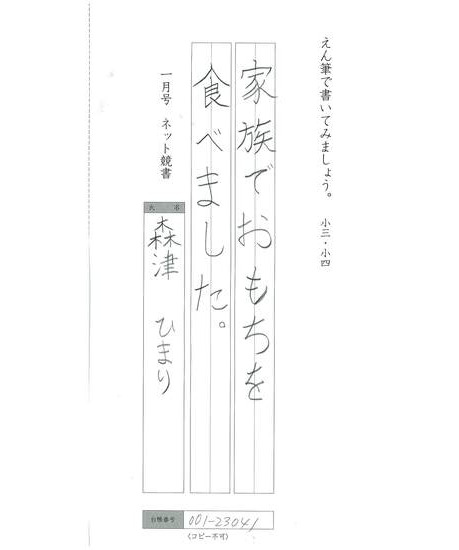 えん筆で書いてみましょう。 小三・小四
家族でおもちを
食べました。
一月号 ネット競書
氏名
森津 ひまり
台帳番号 001-23041
(コピー不可)